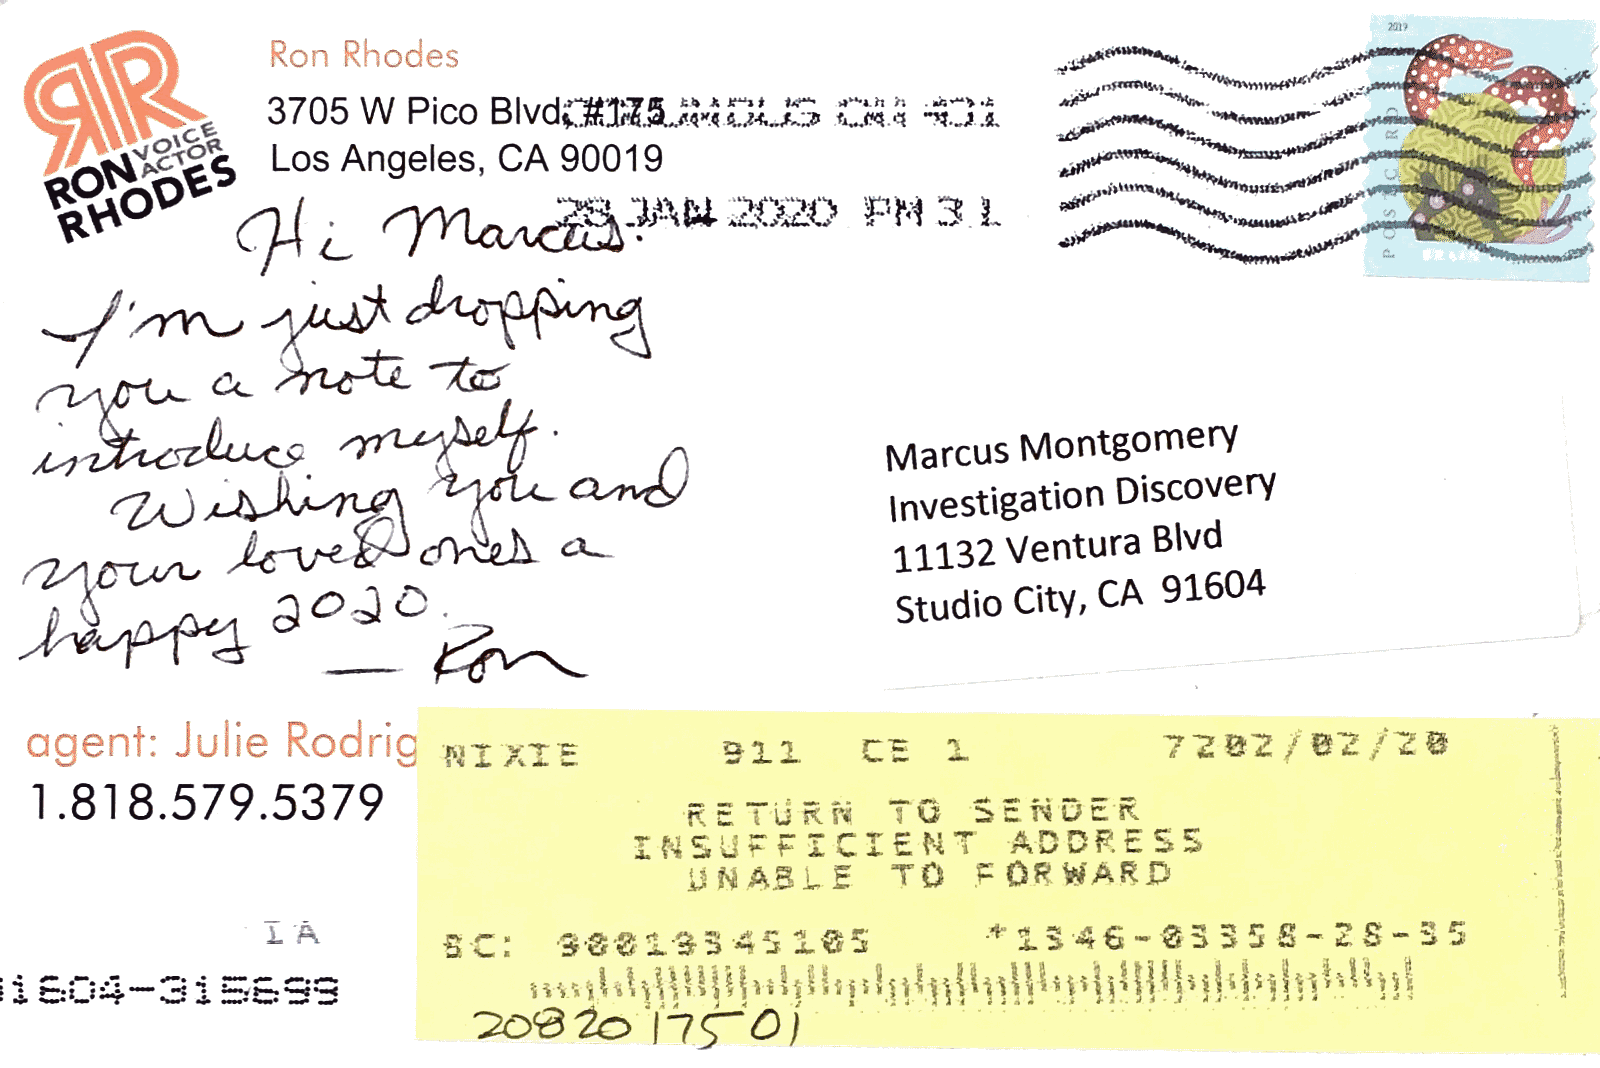 RR
RON VOICE ACTOR
RHODES
Ron Rhodes
3705 W Pico Blvd. #175
Los Angeles, CA 90019
28 JAN 2020 PM 3 L
2019
POSTCARD
Hi Marcus.
I'm just dropping
you a note to
introduce myself.
Wishing you and
your loved ones a
happy 2020.
— Ron
Marcus Montgomery
Investigation Discovery
11132 Ventura Blvd
Studio City, CA 91604
agent: Julie Rodrig
1.818.579.5379
NIXIE 911 CE 1 7202/02/20
RETURN TO SENDER
INSUFFICIENT ADDRESS
UNABLE TO FORWARD
IA
BC: 90019345105 *1346-03358-28-35
91604-315699
2082017501